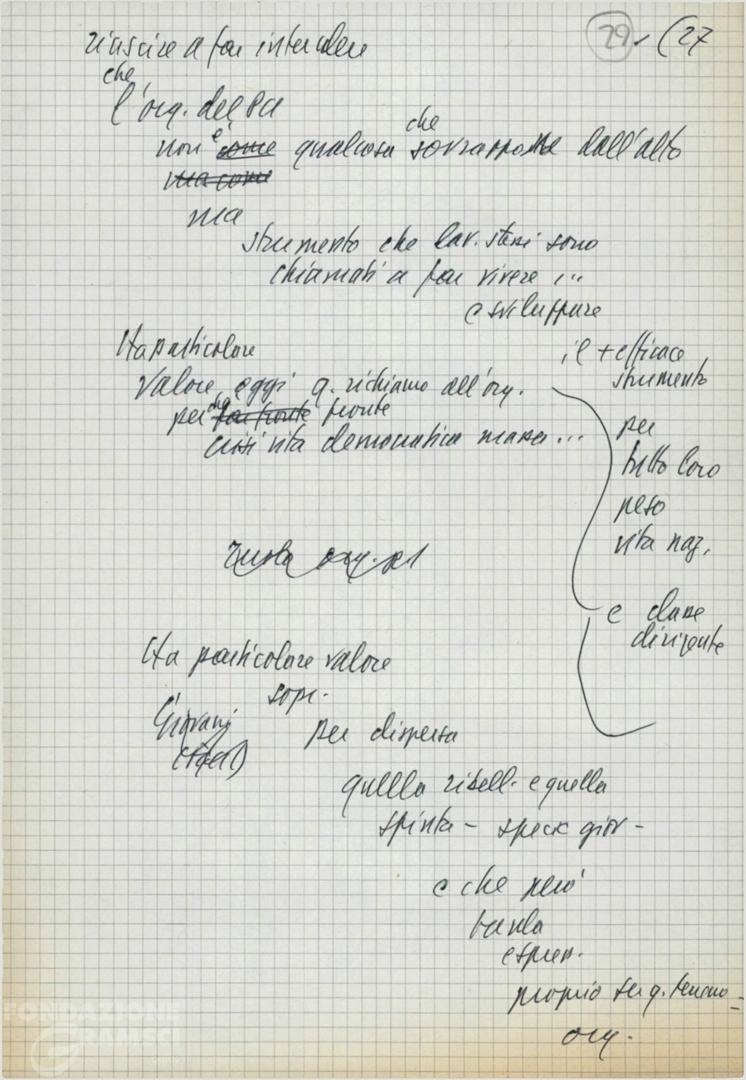 29. (27
riuscire a far intendere
che
l'org. del PCI
non è come qualcosa che sovrapposta dall'alto
ma come
ma
strumento che lav. stessi sono
chiamati a far vivere ...
e sviluppare
Ha particolare
valore, oggi q. richiamo all'org.
per far fronte fronte
crisi vita democratica massa ...
il + efficace
strumento
per
tutto loro
peso
vita naz.
e classe
dirigente
Ha particolare valore
sopr.
Giovani
per dispersa
quella ribell. e quella
spinta - specie giov -
e che però
espress.
proprio su q. terreno -
org.
FONDAZIONE
GRAMSCI